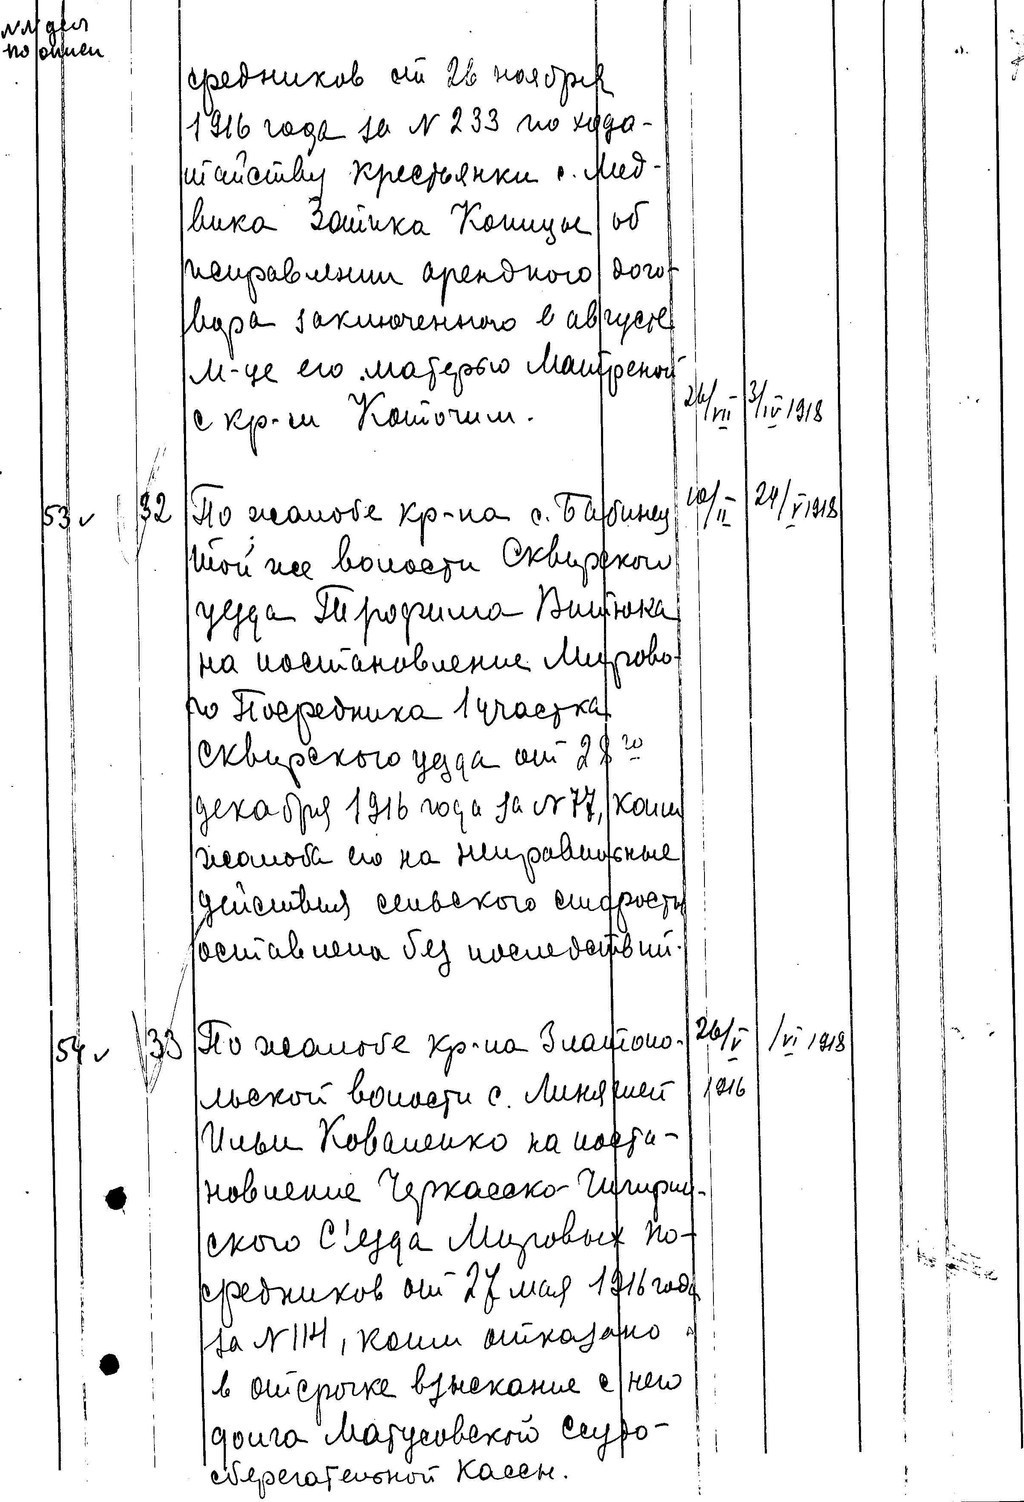 NN дел
по описи
средников от 26 ноября
1916 года за N 233 по хода-
тайству крестьянки с. Мед-
вика Затика Коницы об
исправлении арендного дого-
вора заключенного в августе
м-це его матерью Матреной
с кр-м Коточим. 26/VII 3/IV 1918
53 v 32 По жалобе кр-на с. Бабинец 10/II 24/V 1918
той же волости Сквирского
уезда Трофима Витюка
на постановление Мирово-
го Посредника 1 участка
Сквирского уезда от 28 го
декабря 1916 года за N 77, коим
жалоба его на неправильные
действия сельского старосты
оставлена без последствий.
54 v 33 По жалобе кр-на Златопо- 26/V /VI 1918
льской волости с. Линяшей 1916
Ильи Коваленко на поста-
новление Черкасско-Чигирин-
ского С'езда Мировых По-
средников от 27 мая 1916 года
за N 114, коим отказано
в отсрочке взыскание с него
долга Матусовской Ссудо-
сберегательной Кассы.